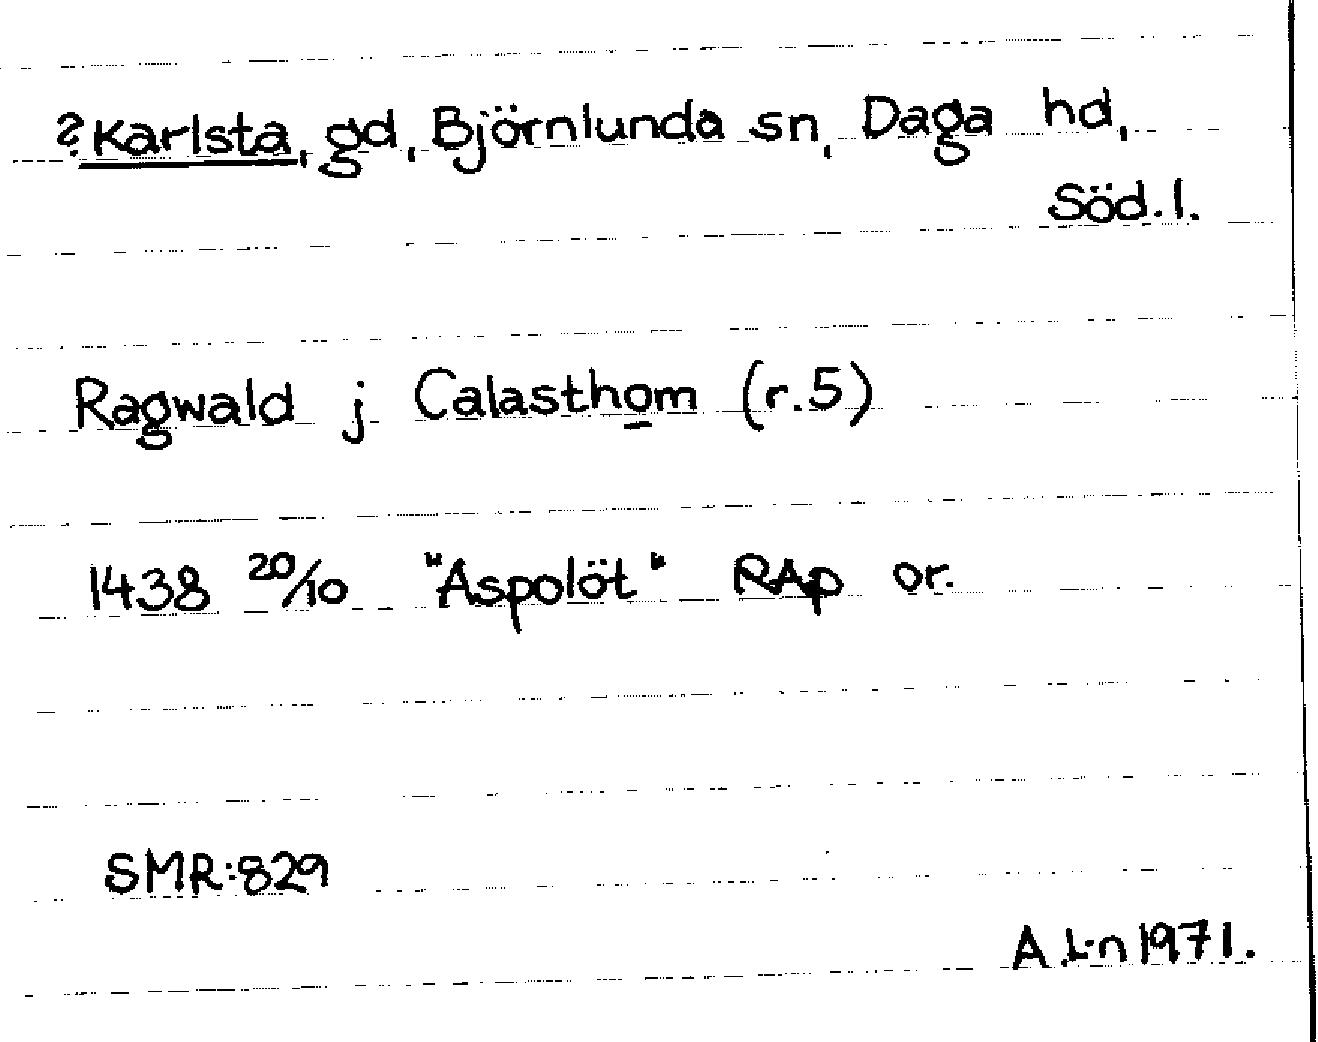 ?Karlsta, gd, Björnlunda sn, Daga hd,
Söd. l.
Ragwald j Calasthom (r.5)
1438 20/10 "Aspolöt" RAp or.
SMR:829
A L-n 1971.